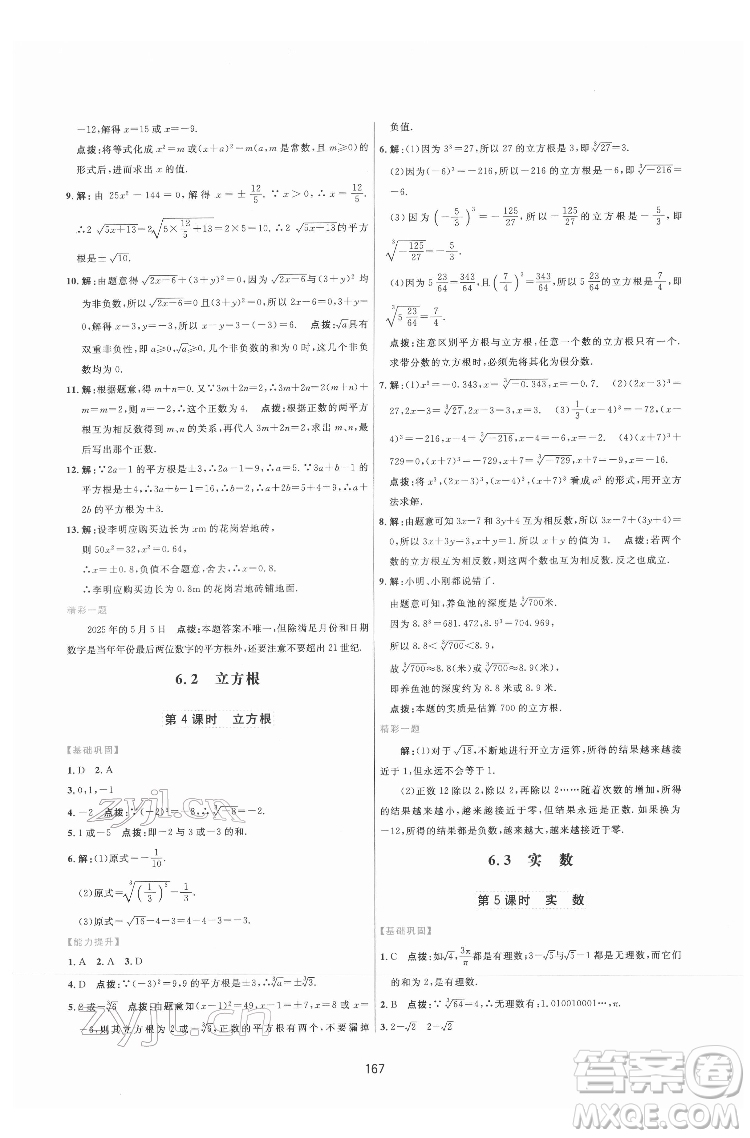 -12,解得 x=15 或 x=-9.
点拨:将等式化成 x²=m 或 (x+a)²=m(a,m 是常数,且 m≥0)的
形式后,进而求出 x 的值.
9. 解:由 25x²-144=0,解得 x=±12/5. ∵x>0,∴x=12/5.
∴2√(5x+13)=2√(5×12/5+13)=2×5=10. ∴2√(5x+13)的平方
根是±√10.
10. 解:由题意得√(2x-6)+(3+y)²=0,∵√(2x-6)与(3+y)²均
为非负数,∴√(2x-6)=0 且(3+y)²=0.从而 2x-6=0,3+y
=0.∴x=3,y=-3.∴x-y=3-(-3)=6. 点拨:√a具有
双重非负性,即 a≥0,√a≥0.几个非负数的和为 0 时,
11. 解:根据题意,得 m+n=0.又 2m+n=2,∴m=2,n=-2.
∴(m-n)=4.∴这个正数为 4. 点拨:根据正数的两平方
根互为相反数得到 m、n 的关系,再代人 求出 m、n,最
后写出这个正数.
12. 解:∵2a-1 的平方根是±3,∴2a-1=9,∴a=5.∵3a+b-1
∴a+2b=9.∴a+2b 的平方根为±3.
13. 解:设李明应购买边长为 xm 的花岗岩地砖,
则 50x²=32,x²=0.64,
∴x=±0.8,负值舍去,∴x=0.8.
∴李明应购买边长为 0.8m 的花岗岩地砖铺地面.
精彩一题
2025 年的 5 月 5 日 点拨:本题答案不唯一,但除满足月份和日期
数字是当年年份最后两位数字的平方根外,还要注意不要超出 21 世纪.
6.2 立方根
第 4 课时 立方根
【基础巩固】
1. D 2. A
3. 0,1,-1
4. -2 点拨:∵(-2)³=-8,∴∛-8=-2.
5. 1 或-5 点拨:即-2 与±3 的和.
6. 解:(1)原式=-1/10.
(2)原式=∛(1/3)³=1/3.
(3)原式=√16-4=4-4=0.
【能力提升】
1. A 2. A 3. D
4. D 点拨:∵(-3)²=9,9 的平方根是±3,∴±3 的立方根是±∛3.
5. 8 或-∛6 点拨:
-6,则其立方根为 2 或-∛6,正数的平方根有两个,不要漏掉
负值.
6. 解:(1)因为 3³=27,所以 27 的立方根是 3,即∛27=3.
(2)因为(-6)³=-216,所以-216 的立方根是-6,即∛-216=
-6.
(3)因为(-5/3)³=-125/27,所以-125/27的立方根是-5/3,即
∛-125/27=-5/3.
(4)因为 5 23/64=343/64,且(7/4)³=343/64,所以 5 23/64的立方根是7/4,即
∛5 23/64=7/4.
点拨:注意区别平方根与立方根,一个数的立方根只有一个.
求带分数的立方根时,必须先将其化为假分数.
7. 解:(1)x³=-0.343,x=∛-0.343,x=-0.7. (2)(x-2)³=
27,x-2=∛27,x-2=3,x=5. (3)1/3(x-4)³=-72,(x-
4)³=-216,x-4=∛-216,x-4=-6,x=-2. (4)(x+7)³+
729=0,(x+7)³=-729,x+7=∛-729,x+7=-9,x=-16.
点拨:将 x³,(x-2)³,(x-4)³,(x+7)³ 看成 a³ 的形式,用开立方
法求解.
8. 解:由题意可知 3x-7 与 3y+4 互为相反数,所以 3x-7+3y+4
=0,所以 3x+3y-3=0,所以 x+y 的值为 1. 点拨:若两个
数的立方根互为相反数,则这两个数也互为相反数.
9. 解:小明、小刚都说错了.
由题意可知,养鱼池的深度是∛700米.
因为 8.8³=681.472,8.9³=704.969,
所以 8.8<∛700<8.9.
故∛700≈8.8(米)或∛700≈8.9(米).
即养鱼池的深度约为 8.8 米或 8.9 米.
点拨:本题的实质是估算 700 的立方根.
精彩一题
解:(1)对于√18,不断地进行开立方运算,所得的结果越来越接
近于 1.
(2)正数 12 除以 2,再除以 2,再除以 2……随着次数的增加,所得
的结果越来越小,越来越接近于零,但结果总是正数.如果换为
-12,所得的结果都是负数,越来越大,越来越接近于零.
6.3 实 数
第 5 课时 实 数
【基础巩固】
1. C 点拨:如√4,3π/π都是有理数;3-√5与√5都是无理数,而它们
的和为 3,是有理数.
2. B 点拨:∵∛64=4,∴无理数有:1.010010001…,π.
3. 2-√2 2-√2
167
zyjl.cn
答案圈
MXQE.COM